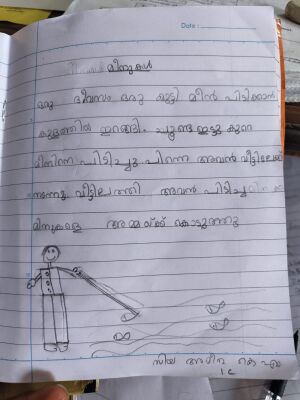 Date :
മീനുകൾ
ഒരു ദിവസം ഒരു കുട്ടി മീൻ പിടിക്കാൻ
കുളത്തിൽ ഇറങ്ങി. ചൂണ്ട ഇട്ടു കുറെ
മീനിനെ പിടിച്ചു. പിന്നെ അവൻ വീട്ടിലേക്ക്
നടന്നു. വീട്ടിലെത്തി അവൻ പിടിച്ച
മീനുകളെ അമ്മയ്ക്ക് കൊടുത്തു
സിയ
1 C